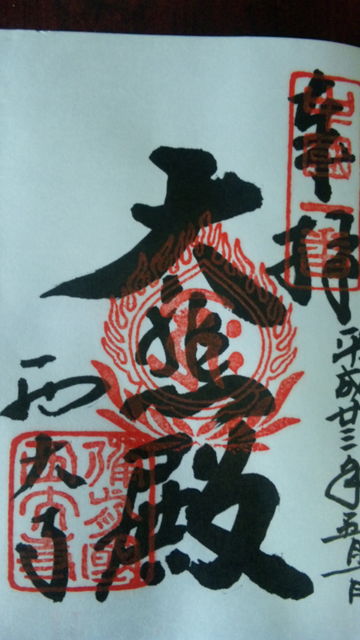 奉拝
平成廿三年五月一日
大悲殿
西大寺